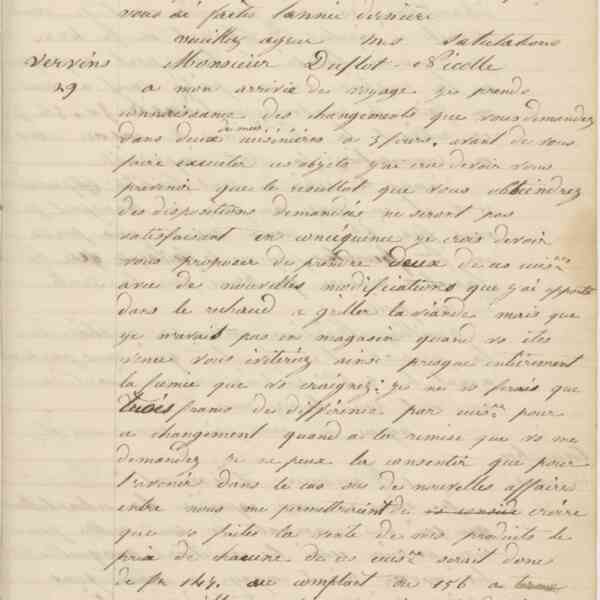 vous ai faites l'année dernière
veuillez agréer mes salutations
Vervins Monsieur Duflot-Nicolle
29 a mon arrivée de voyage je prends
connaissance des changements que vous demandez
dans deux de mes cuisinières a 3 fours. avant de vous
faire executer ces objets j'ai cru devoir vous
prevenir que le resultat que vous obtiendrez
des dispositions demandés ne seront pas
satisfaisant en conséquence je crois devoir
vous proposer de prendre deux de ces cuisres
avec de nouvelles modifications que j'ai apporté
dans le rechaud a griller la viande mais que
je n'avais pas en magasin quand vs êtes
venue vous éviteriez ainsi presque entièrement
la fumée que vs craignez: je ne vs ferais que
trois francs de différence par cuisre pour
a changement quand a la remise que vs me
demandez je ne peux la consentir que pour
l'avenir dans le cas ou de nouvelles affaire
entre nous me permettraient de croire
que vs faites la vente de mes produits le
prix de chacune de ces cuisres serait donc
de fr 147. au comptant ou 156 a